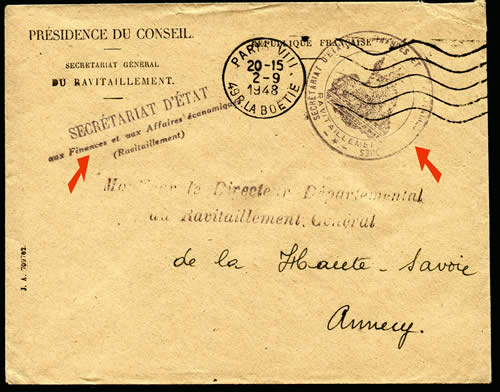 PRÉSIDENCE DU CONSEIL.
SECRÉTARIAT GÉNÉRAL
DU RAVITAILLEMENT.
RÉPUBLIQUE FRANÇAISE
PARIS VIII
20-15
2-9
1948
49 R. LA BOËTIE
SECRÉTARIAT D'ÉTAT
aux Finances et aux Affaires économiques
(Ravitaillement)
SECRÉTARIAT D'ÉTAT FINANCES ET
RAVITAILLEMENT
Monsieur le Directeur Départemental
du Ravitaillement Général
de la Haute-Savoie
Annecy.
J. A. 709782.